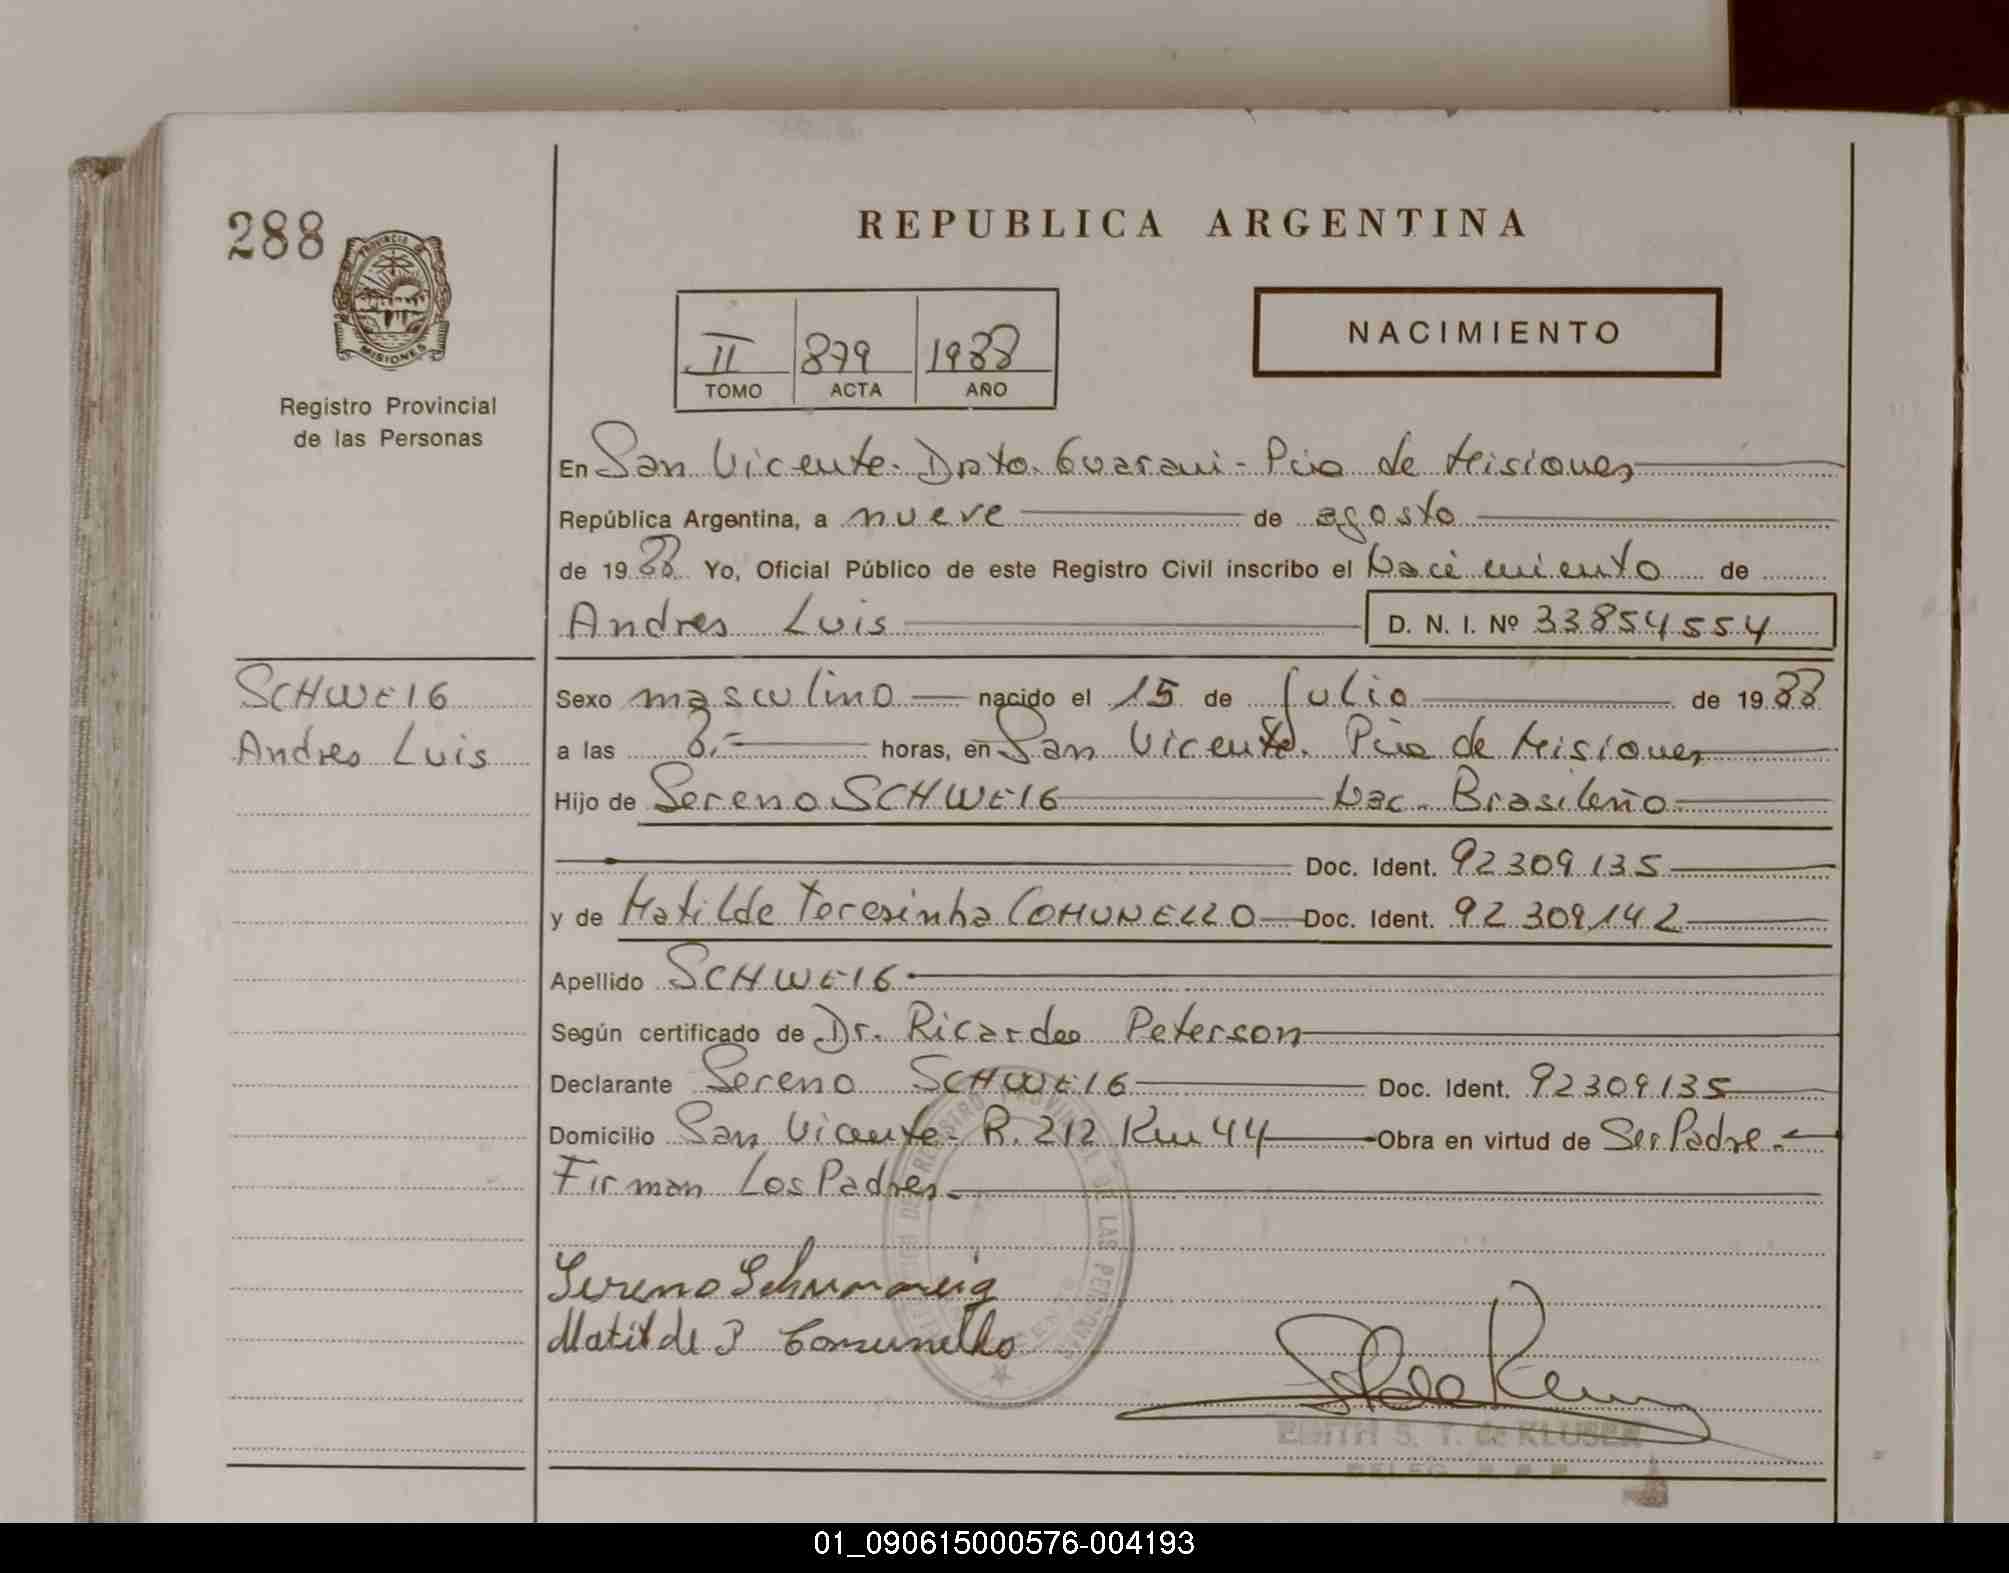 288
PROVINCIA DE
MISIONES
Registro Provincial
de las Personas
REPUBLICA ARGENTINA
II 879 1988
TOMO ACTA AÑO
NACIMIENTO
En San Vicente. Dpto. Guarani - Pcia de Misiones
República Argentina, a nueve de agosto
de 1988 Yo, Oficial Público de este Registro Civil inscribo el Nacimiento de
Andres Luis D. N. I. Nº 33854554
SCHWEIG
Andres Luis
Sexo masculino nacido el 15 de Julio de 1988
a las 8.- horas, en San Vicente. Pcia de Misiones
Hijo de Sereno SCHWEIG Nac. Brasileño
Doc. Ident. 92309135
y de Matilde Teresinha COMUNELLO Doc. Ident. 92309142
Apellido SCHWEIG
Según certificado de Dr. Ricardo Peterson
Declarante Sereno SCHWEIG Doc. Ident. 92309135
Domicilio San Vicente - R. 212 Km 44 Obra en virtud de Ser Padre.
Firman Los Padres.
REGISTRO PROVINCIAL DE LAS PERSONAS
Sereno Schweig
Matilde Comunello
EDITH S. T. de KLUSER
01_090615000576-004193